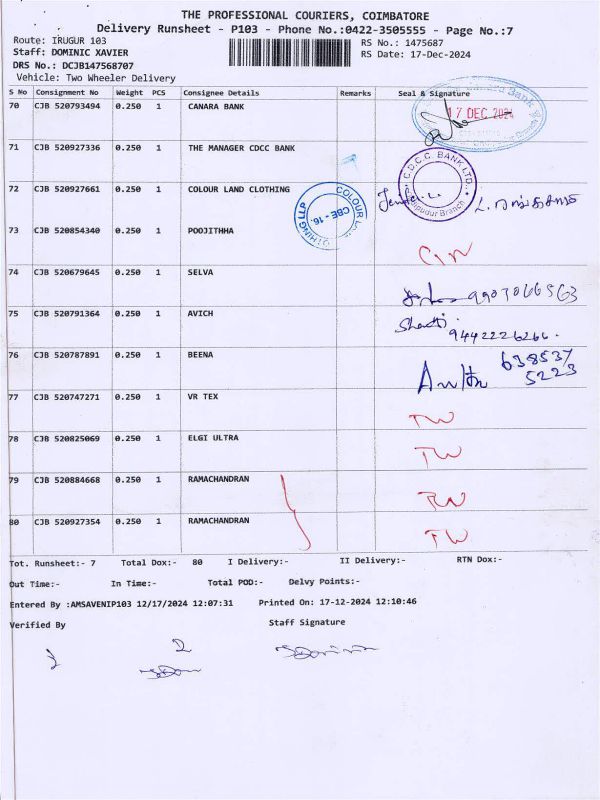 THE PROFESSIONAL COURIERS, COIMBATORE
Delivery Runsheet - P103 - Phone No.:0422-3505555 - Page No.:7
Route: IRUGUR 103 RS No.: 1475687
Staff: DOMINIC XAVIER RS Date: 17-Dec-2024
DRS No.: DCJB147568707
Vehicle: Two Wheeler Delivery
S No Consignment No Weight PCS Consignee Details Remarks Seal & Signature
70 CJB 520793494 0.250 1 CANARA BANK
17 DEC 2024
71 CJB 520927336 0.250 1 THE MANAGER CDCC BANK
C.D.C.C. BANK LTD.
Branch
72 CJB 520927661 0.250 1 COLOUR LAND CLOTHING
COLOUR
CBE - 16.
THING LLP
73 CJB 520854340 0.250 1 POOJITHHA
74 CJB 520679645 0.250 1 SELVA
75 CJB 520791364 0.250 1 AVICH
9442226266.
76 CJB 520787891 0.250 1 BEENA
638537
5223
77 CJB 520747271 0.250 1 VR TEX TW
78 CJB 520825069 0.250 1 ELGI ULTRA TW
79 CJB 520884668 0.250 1 RAMACHANDRAN TW
80 CJB 520927354 0.250 1 RAMACHANDRAN TW
Tot. Runsheet:- 7 Total Dox:- 80 I Delivery:- II Delivery:- RTN Dox:-
Out Time:- In Time:- Total POD:- Delvy Points:-
Entered By :AMSAVENIP103 12/17/2024 12:07:31 Printed On: 17-12-2024 12:10:46
Verified By Staff Signature